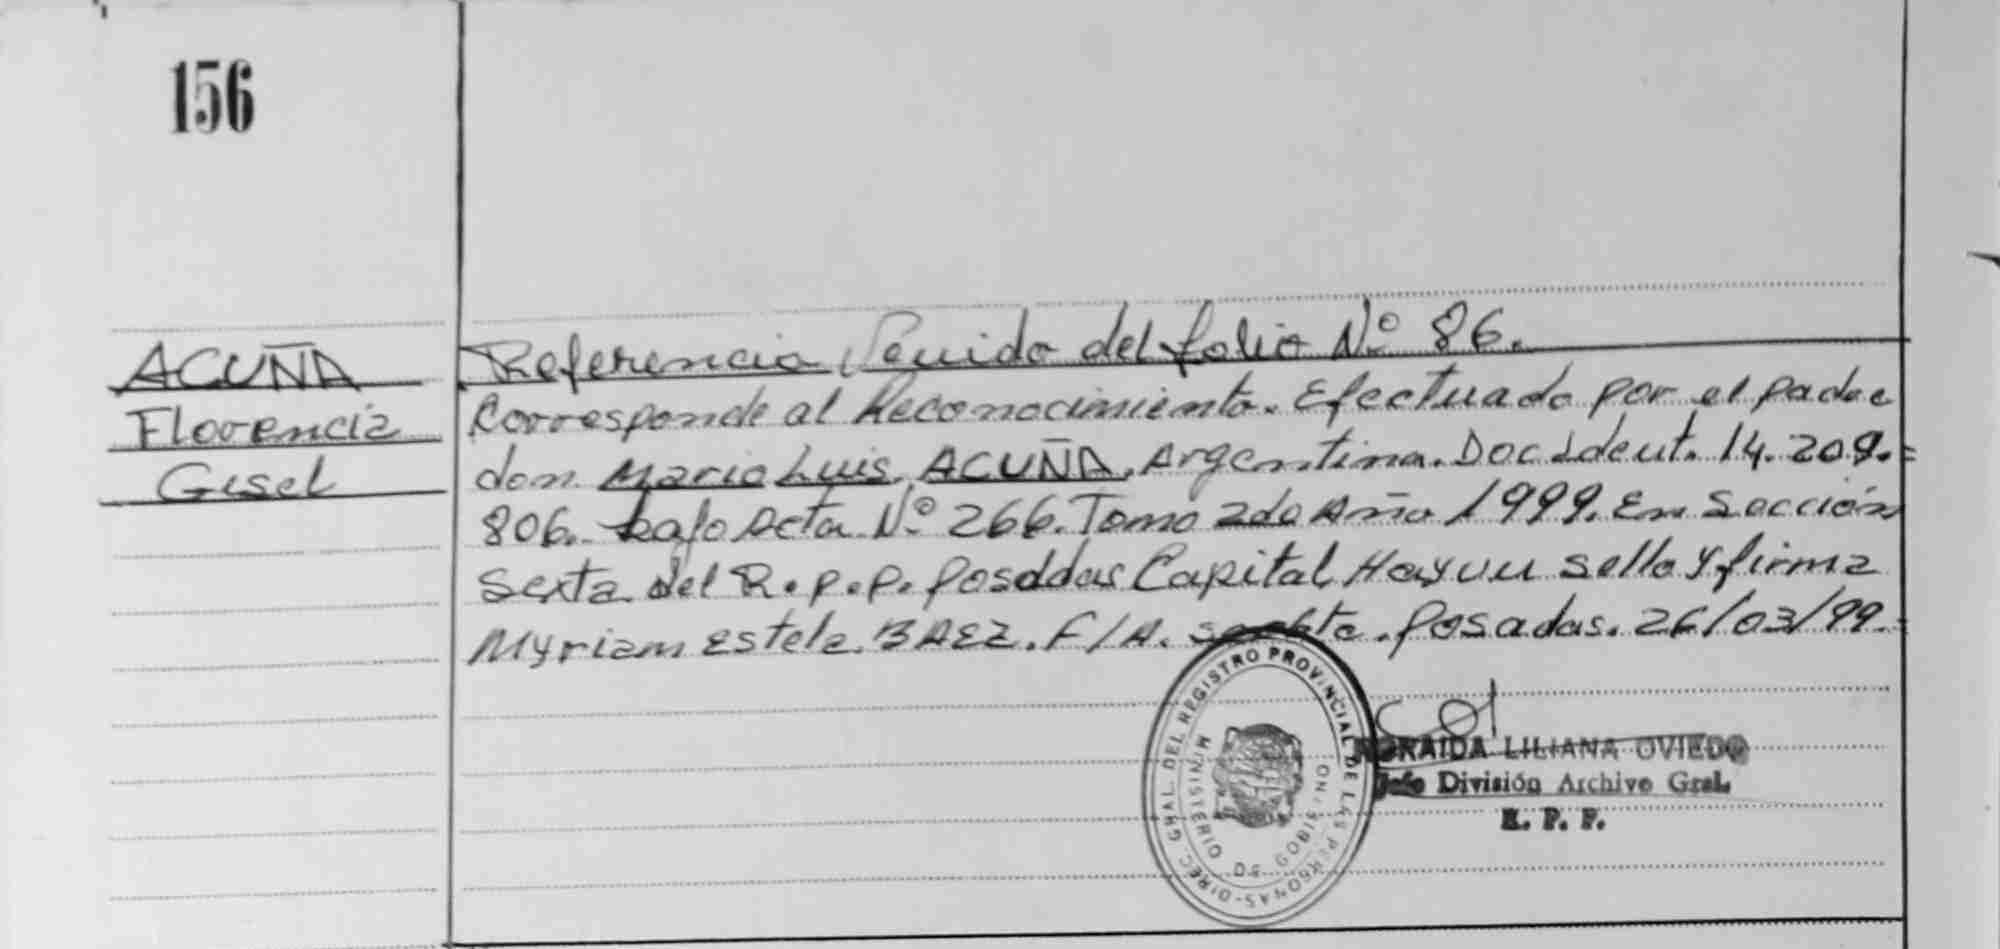 156
ACUÑA
Florencia
Gisel
Referencia Venida del folio Nº 86.
Corresponde al Reconocimiento. Efectuado por el padre
don Mario Luis ACUÑA. Argentina. Doc Ident. 14.209.=
806. bajo Acta Nº 266. Tomo 2do Año 1999. En Sección
Sexta del R.P.P. Posadas Capital Hay un sello y firma
Myriam Estela BAEZ. F/A. Posadas. 26/03/99.
DIREC. GRAL. DEL REGISTRO PROVINCIAL DE LAS PERSONAS
MINISTERIO DE GOBIERNO
LILIANA OVIEDO
Jefe División Archivo Gral.
R. P. P.